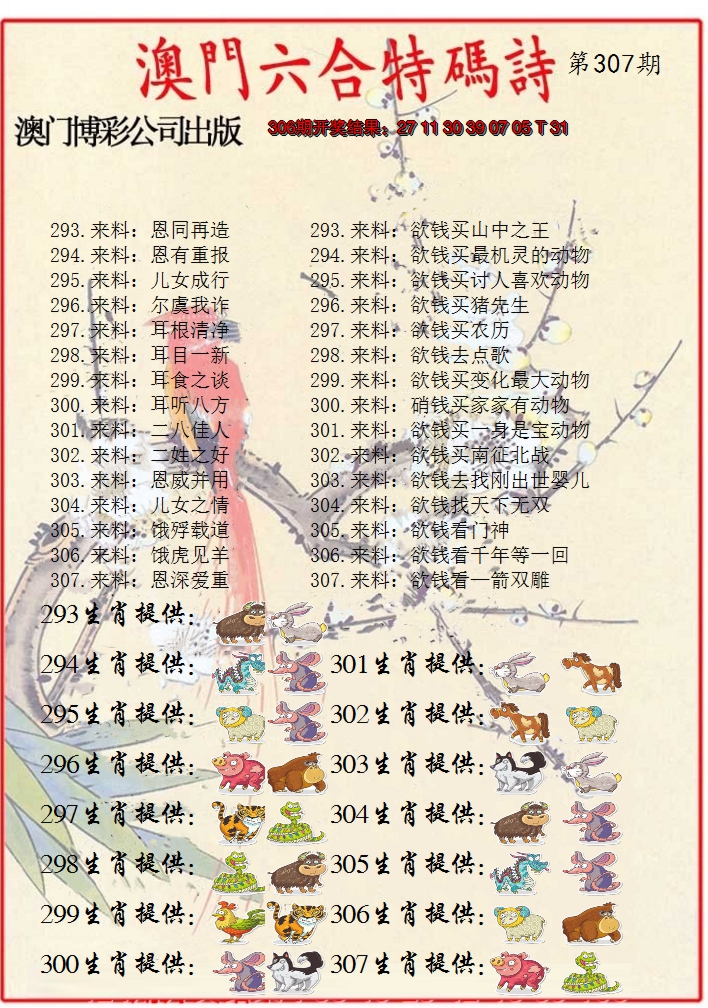 澳門六合特碼詩 第307期
澳门博彩公司出版 306期开奖结果：27 11 30 39 07 05 T 31
293.来料：恩同再造 293.来料：欲钱买山中之王
294.来料：恩有重报 294.来料：欲钱买最机灵的动物
295.来料：儿女成行 295.来料：欲钱买讨人喜欢动物
296.来料：尔虞我诈 296.来料：欲钱买猪先生
297.来料：耳根清净 297.来料：欲钱买农历
298.来料：耳目一新 298.来料：欲钱去点歌
299.来料：耳食之谈 299.来料：欲钱买变化最大动物
300.来料：耳听八方 300.来料：硝钱买家家有动物
301.来料：二八佳人 301.来料：欲钱买一身是宝动物
302.来料：二姓之好 302.来料：欲钱买南征北战
303.来料：恩威并用 303.来料：欲钱去找刚出世婴儿
304.来料：儿女之情 304.来料：欲钱找天下无双
305.来料：饿殍载道 305.来料：欲钱看门神
306.来料：饿虎见羊 306.来料：欲钱看千年等一回
307.来料：恩深爱重 307.来料：欲钱看一箭双雕
293生肖提供：
294生肖提供： 301生肖提供：
295生肖提供： 302生肖提供：
296生肖提供： 303生肖提供：
297生肖提供： 304生肖提供：
298生肖提供： 305生肖提供：
299生肖提供： 306生肖提供：
300生肖提供： 307生肖提供：